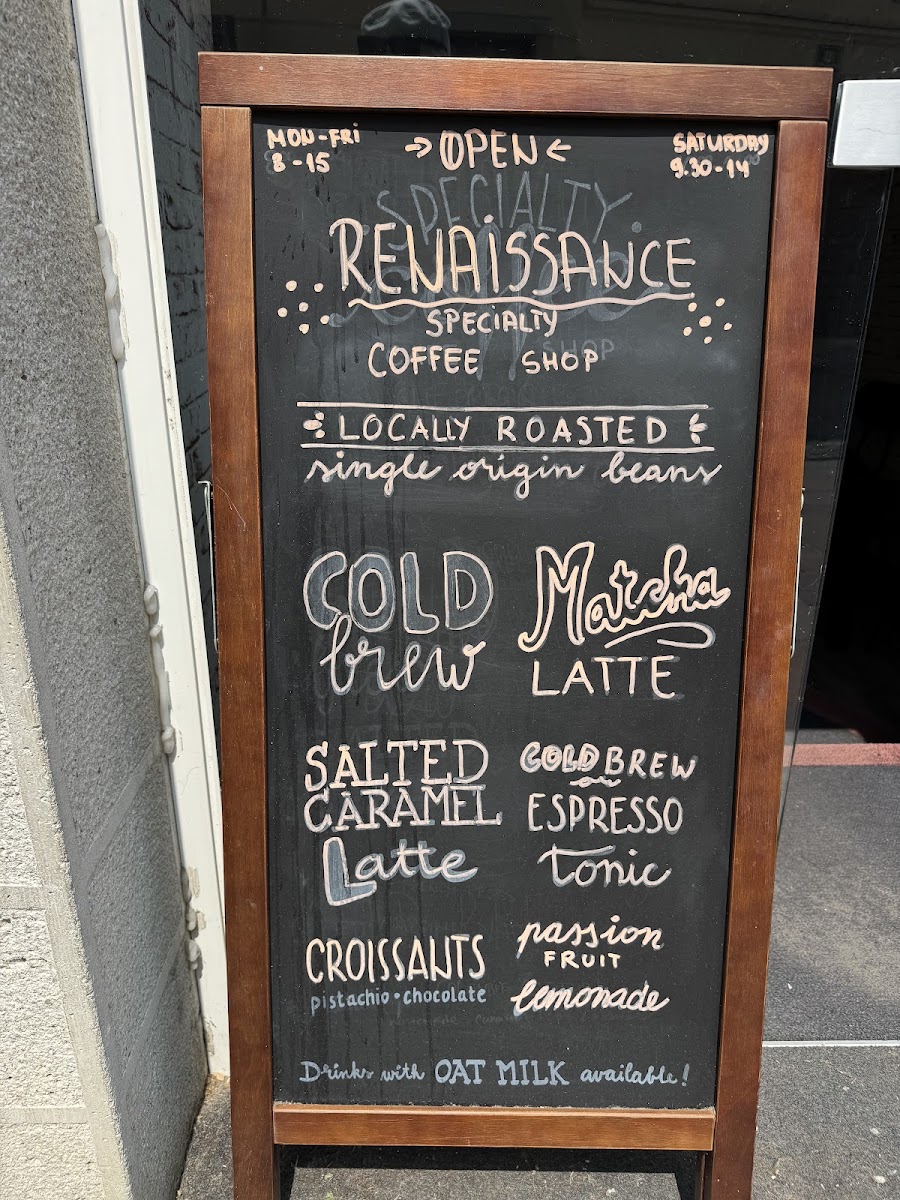 MON-FRi
8-15
→OPEN←
SATURDAY
9.30-14
RENAiSSANCE
SPECiALTY
COFFEE SHOP
LOCALLY ROASTED
single origin beans
COLD
brew
Matcha
LATTE
SALTED
CARAMEL
Latte
COLD BREW
or
ESPRESSO
tonic
CROISSANTS
pistachio • chocolate
passion
FRUIT
lemonade
Drinks with OAT MILK available!